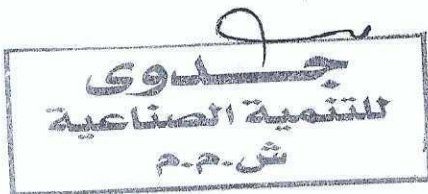 جدوى
للتنمية الصناعية
ش.م.م